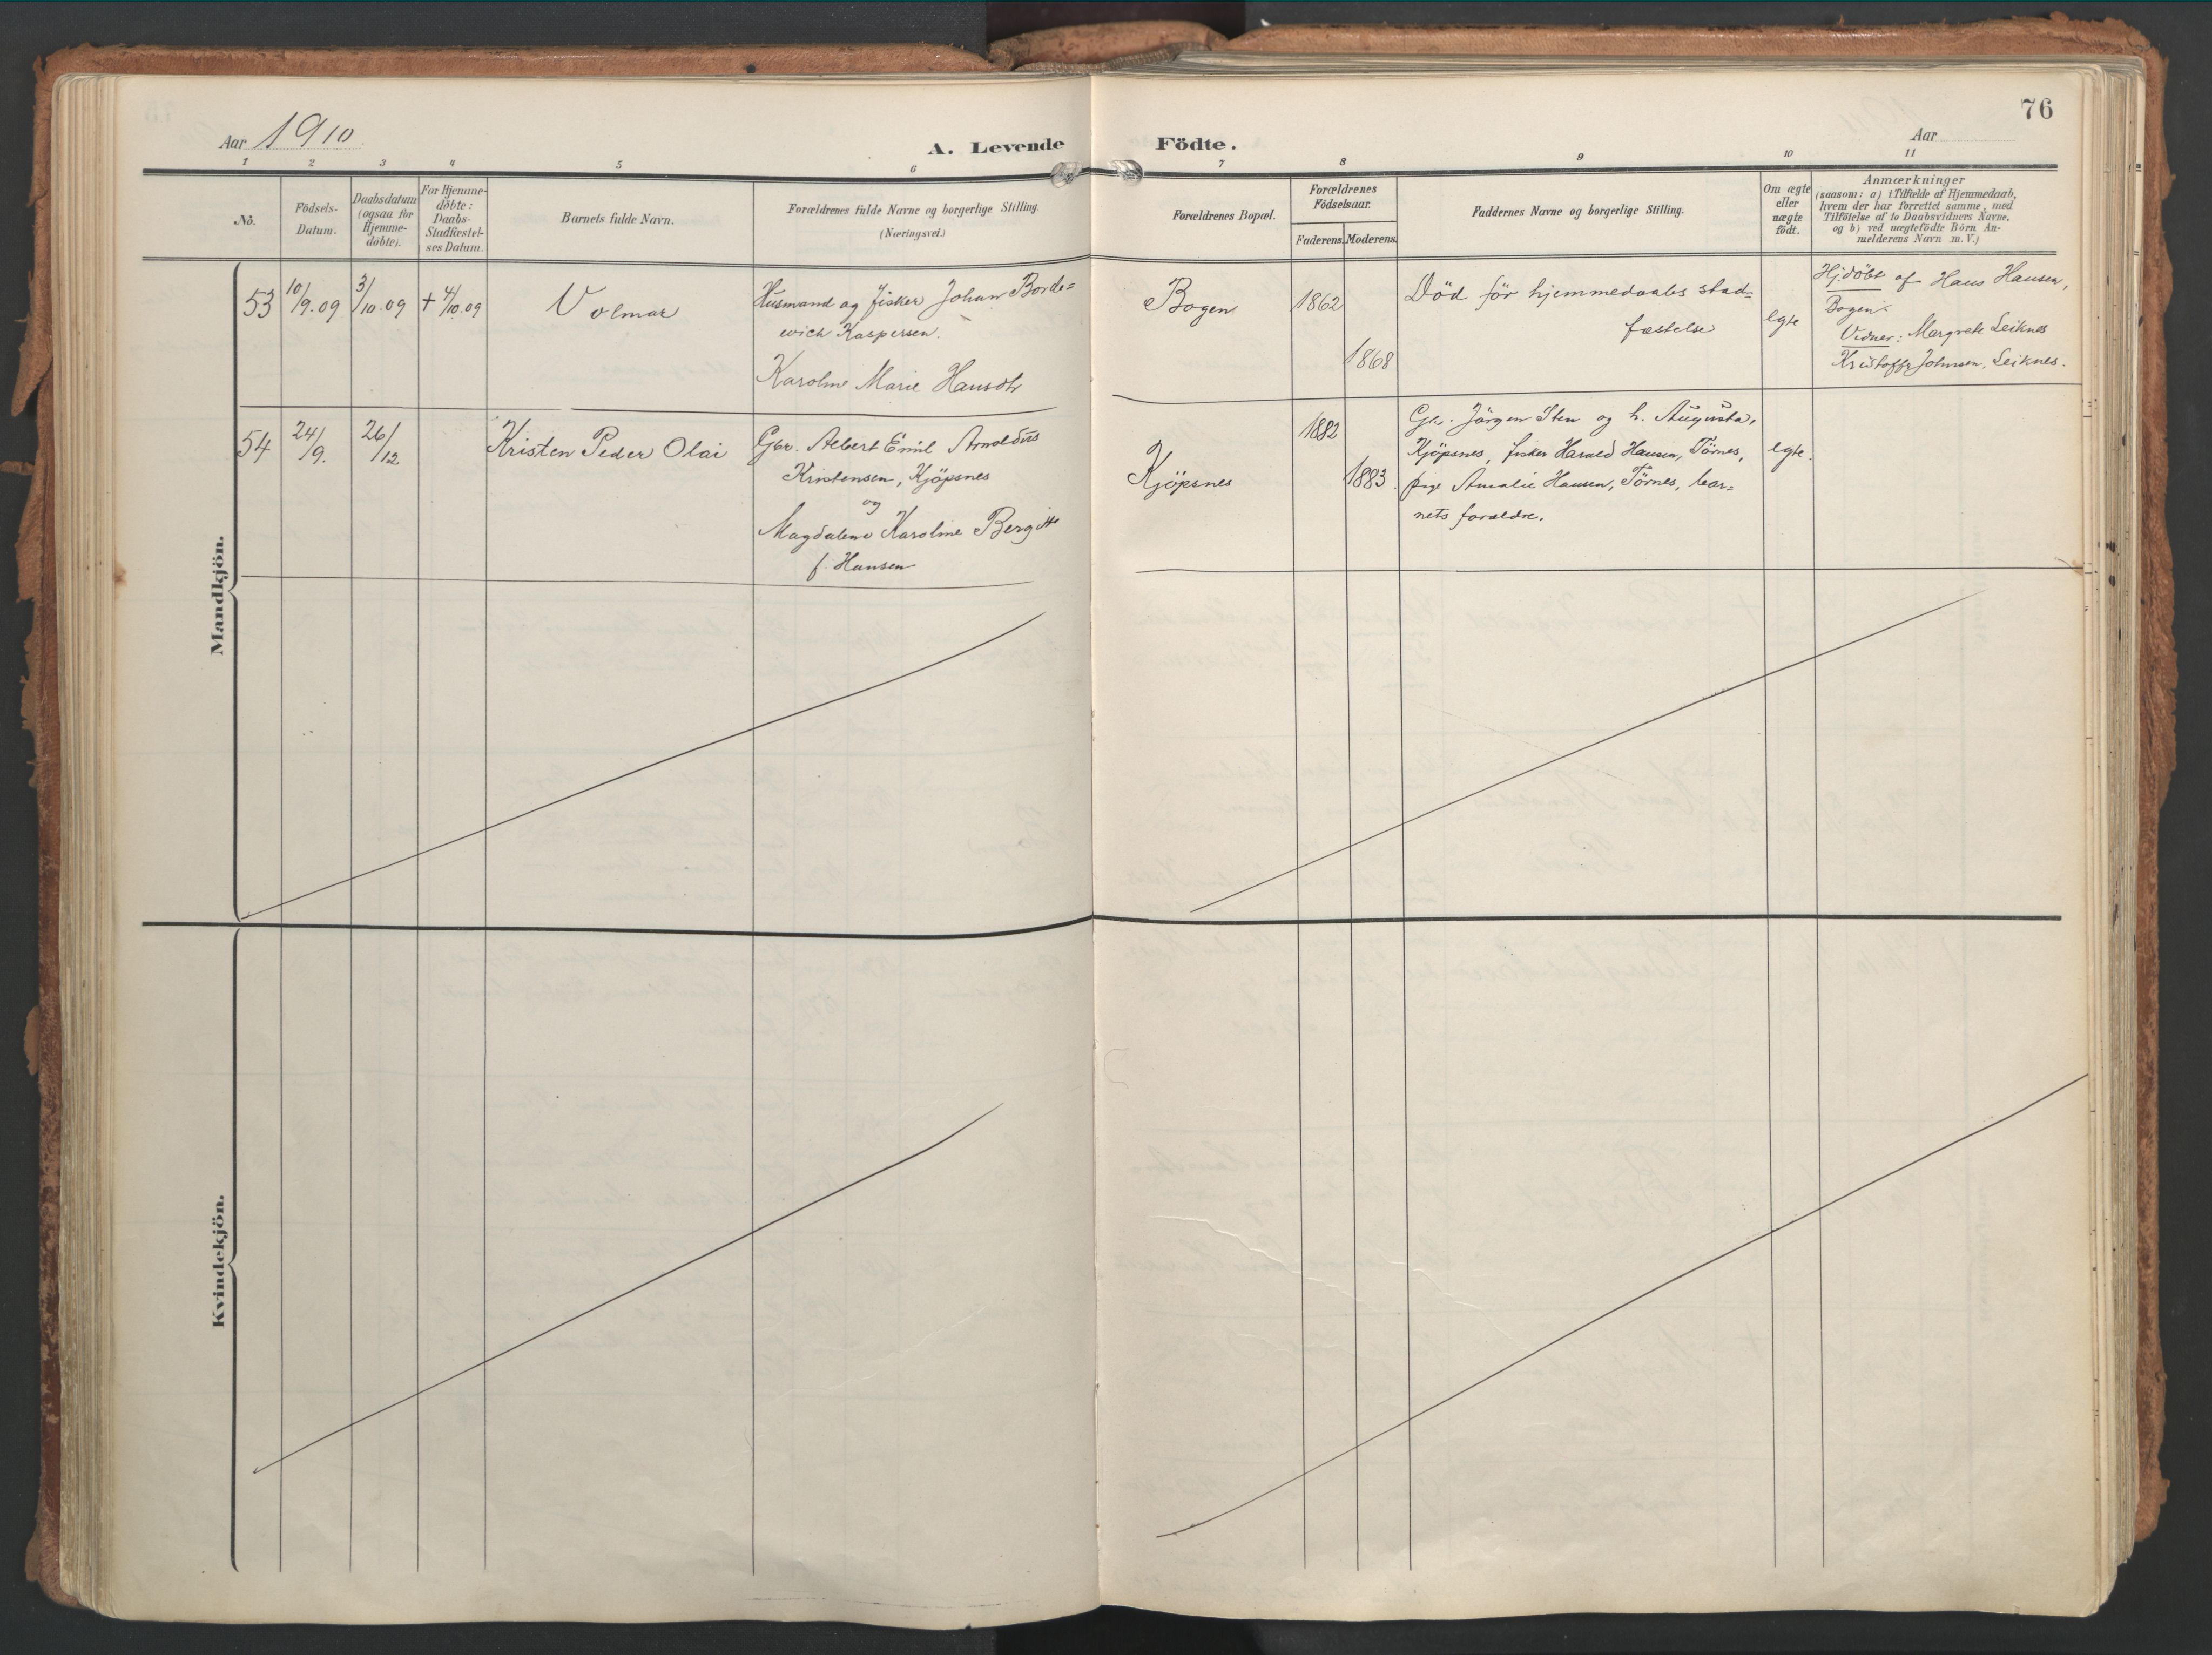 76
Aar 1910
A. Levende Födte.
Aar
1 2 3 4 5 6 7 8 9 10 11
No.
Födsels-
Datum.
Daabsdatum
(ogsaa for
Hjemme-
döbte).
For Hjemme-
döbte:
Daabs-
Stadfæstel-
ses Datum.
Barnets fulde Navn.
Forældrenes fulde Navne og borgerlige Stilling.
(Næringsvei.)
Forældrenes Bopæl.
Forældrenes
Födselsaar.
Faderens. Moderens.
Faddernes Navne og borgerlige Stilling.
Om ægte
eller
uægte
födt.
Anmærkninger
(saasom: a) i Tilfælde af Hjemmedaab,
hvem der har forrettet samme, med
Tilföielse af to Daabsvidners Navne,
og b) ved uægtefödte Börn An-
melderens Navn m. V.)
Mandkjön.
53
10/9.09
3/10.09
+ 4/10.09
Volmar
Husmand og fisker Johan Borde=
wich Kaspersen.
Karoline Marie Hansdtr
Bogen
1862
1868
Död för hjemmedaabs stad=
fæstelse
egte
Hj.döbt af Hans Hansen,
Bogen.
Vidner: Margrete Leiknes
Kristoffer Johnsen, Leiknes.
54
24/9.
26/12
Kristen Peder Olai
Gbr. Albert Emil Arnoldus
Kristensen, Kjöpsnes
og
Magdalene Karoline Bergitte
f. Hansen
Kjöpsnes
1882
1883
Gbr. Jörgen Sten og h. Augusta,
Kjöpsnes, fisker Harald Hansen, Törnes,
pige Amalie Hansen, Törnes, bar=
nets forældre.
egte.
Kvindekjön.